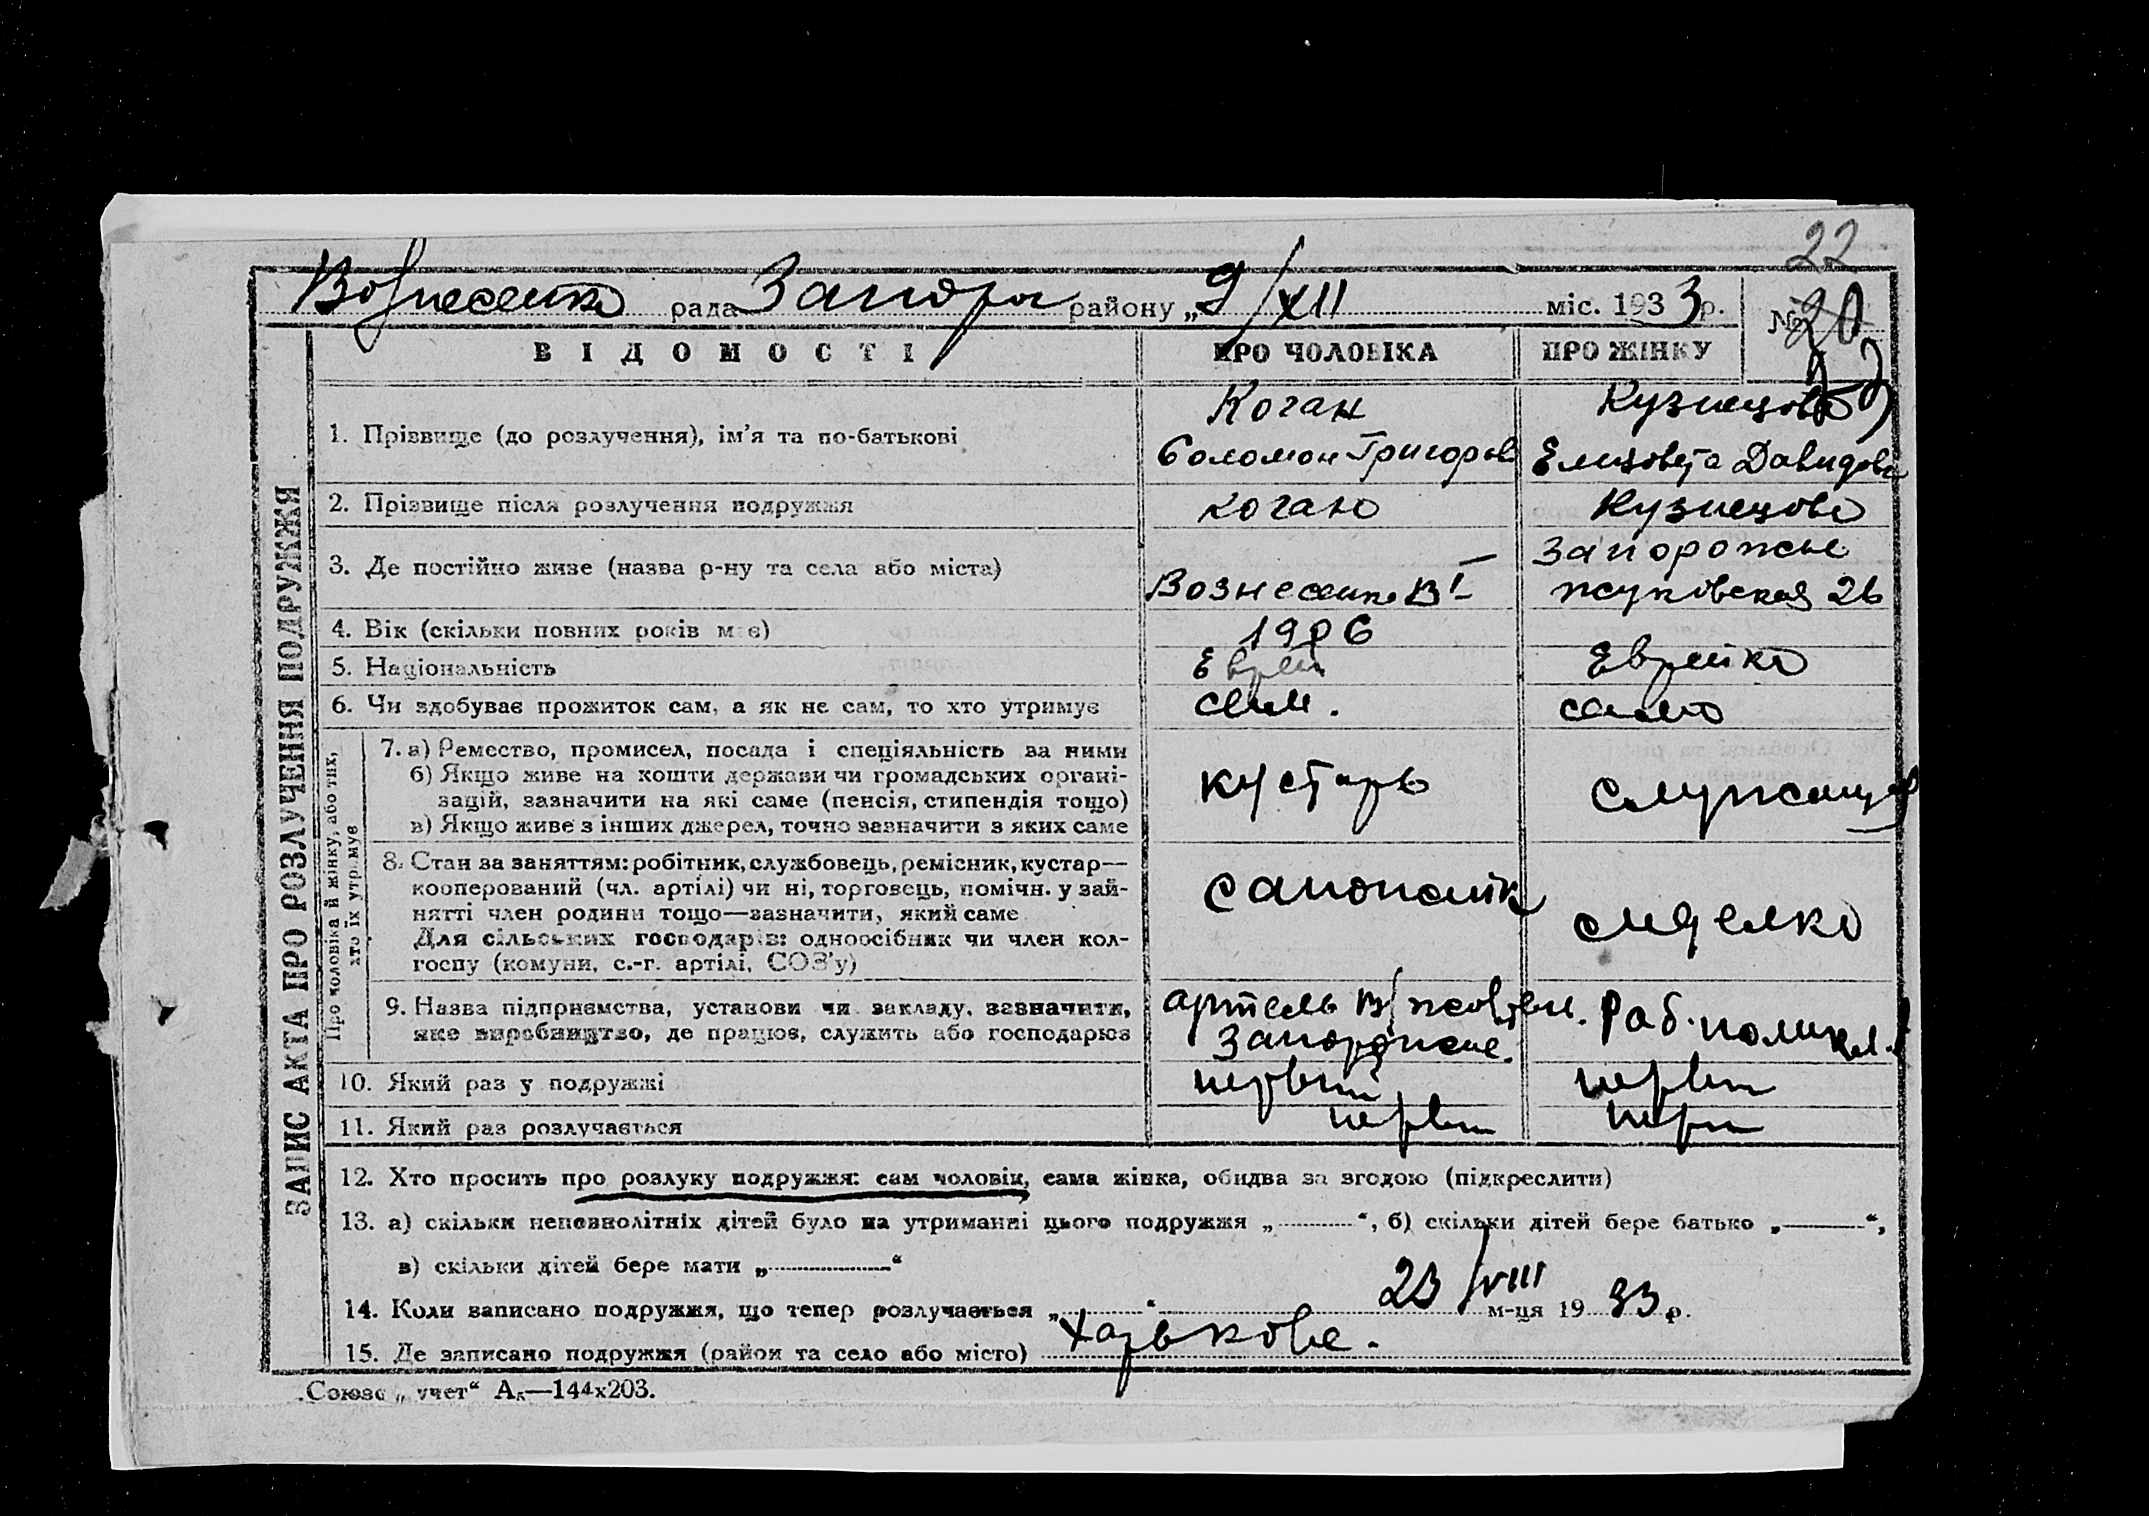 22
Вознесенка рада Запорож району „9/XII міс. 1933р.
№ 20
ЗАПИС АКТА ПРО РОЗЛУЧЕННЯ ПОДРУЖЖЯ
ВІДОМОСТІ ПРО ЧОЛОВІКА ПРО ЖІНКУ
1. Прізвище (до розлучення), ім'я та по-батькові
Коган Кузнецова
Соломон Григоров Елизовета Давидовн
2. Прізвище після розлучення подружжя Коган Кузнецова
3. Де постійно живе (назва р-ну та села або міста)
Запорожье
Вознесенка Жуковская 26
4. Вік (скільки повних років має) 1906
5. Національність Еврей Еврейка
6. Чи здобуває прожиток сам, а як не сам, то хто утримує сам. сама
Про чоловіка й жінку, або тих,
хто їх утримує
7. а) Ремество, промисел, посада і спеціяльність за ними
б) Якщо живе на кошти держави чи громадських органі-
зацій, зазначити на які саме (пенсія, стипендія тощо)
в) Якщо живе з інших джерел, точно зазначити з яких саме
кустарь служащая
8. Стан за заняттям: робітник, службовець, ремісник, кустар—
кооперований (чл. артілі) чи ні, торговець, помічн. у зай-
нятті член родини тощо—зазначити, який саме
Для сільських господарів: одноосібник чи член кол-
госпу (комуни, с.-г. артілі, СОЗ'у)
сапожник
9. Назва підприємства, установи чи закладу, зазначити,
яке виробництво, де працює, служить або господарює
артель Жовтен. Раб. поликл.
Запорожье.
10. Який раз у подружжі первый первый
11. Який раз розлучається первы перв
12. Хто просить про розлуку подружжя: сам чоловік, сама жінка, обидва за згодою (підкреслити)
13. а) скільки неповнолітніх дітей було на утриманні цього подружжя „ “, б) скільки дітей бере батько „—“,
в) скільки дітей бере мати „ “
14. Коли записано подружжя, що тепер розлучається „ “ 23/VIII м-ця 1933 р.
15. Де записано подружжя (район та село або місто) Харькове.
Союзо „учет“ А₅—144х203.